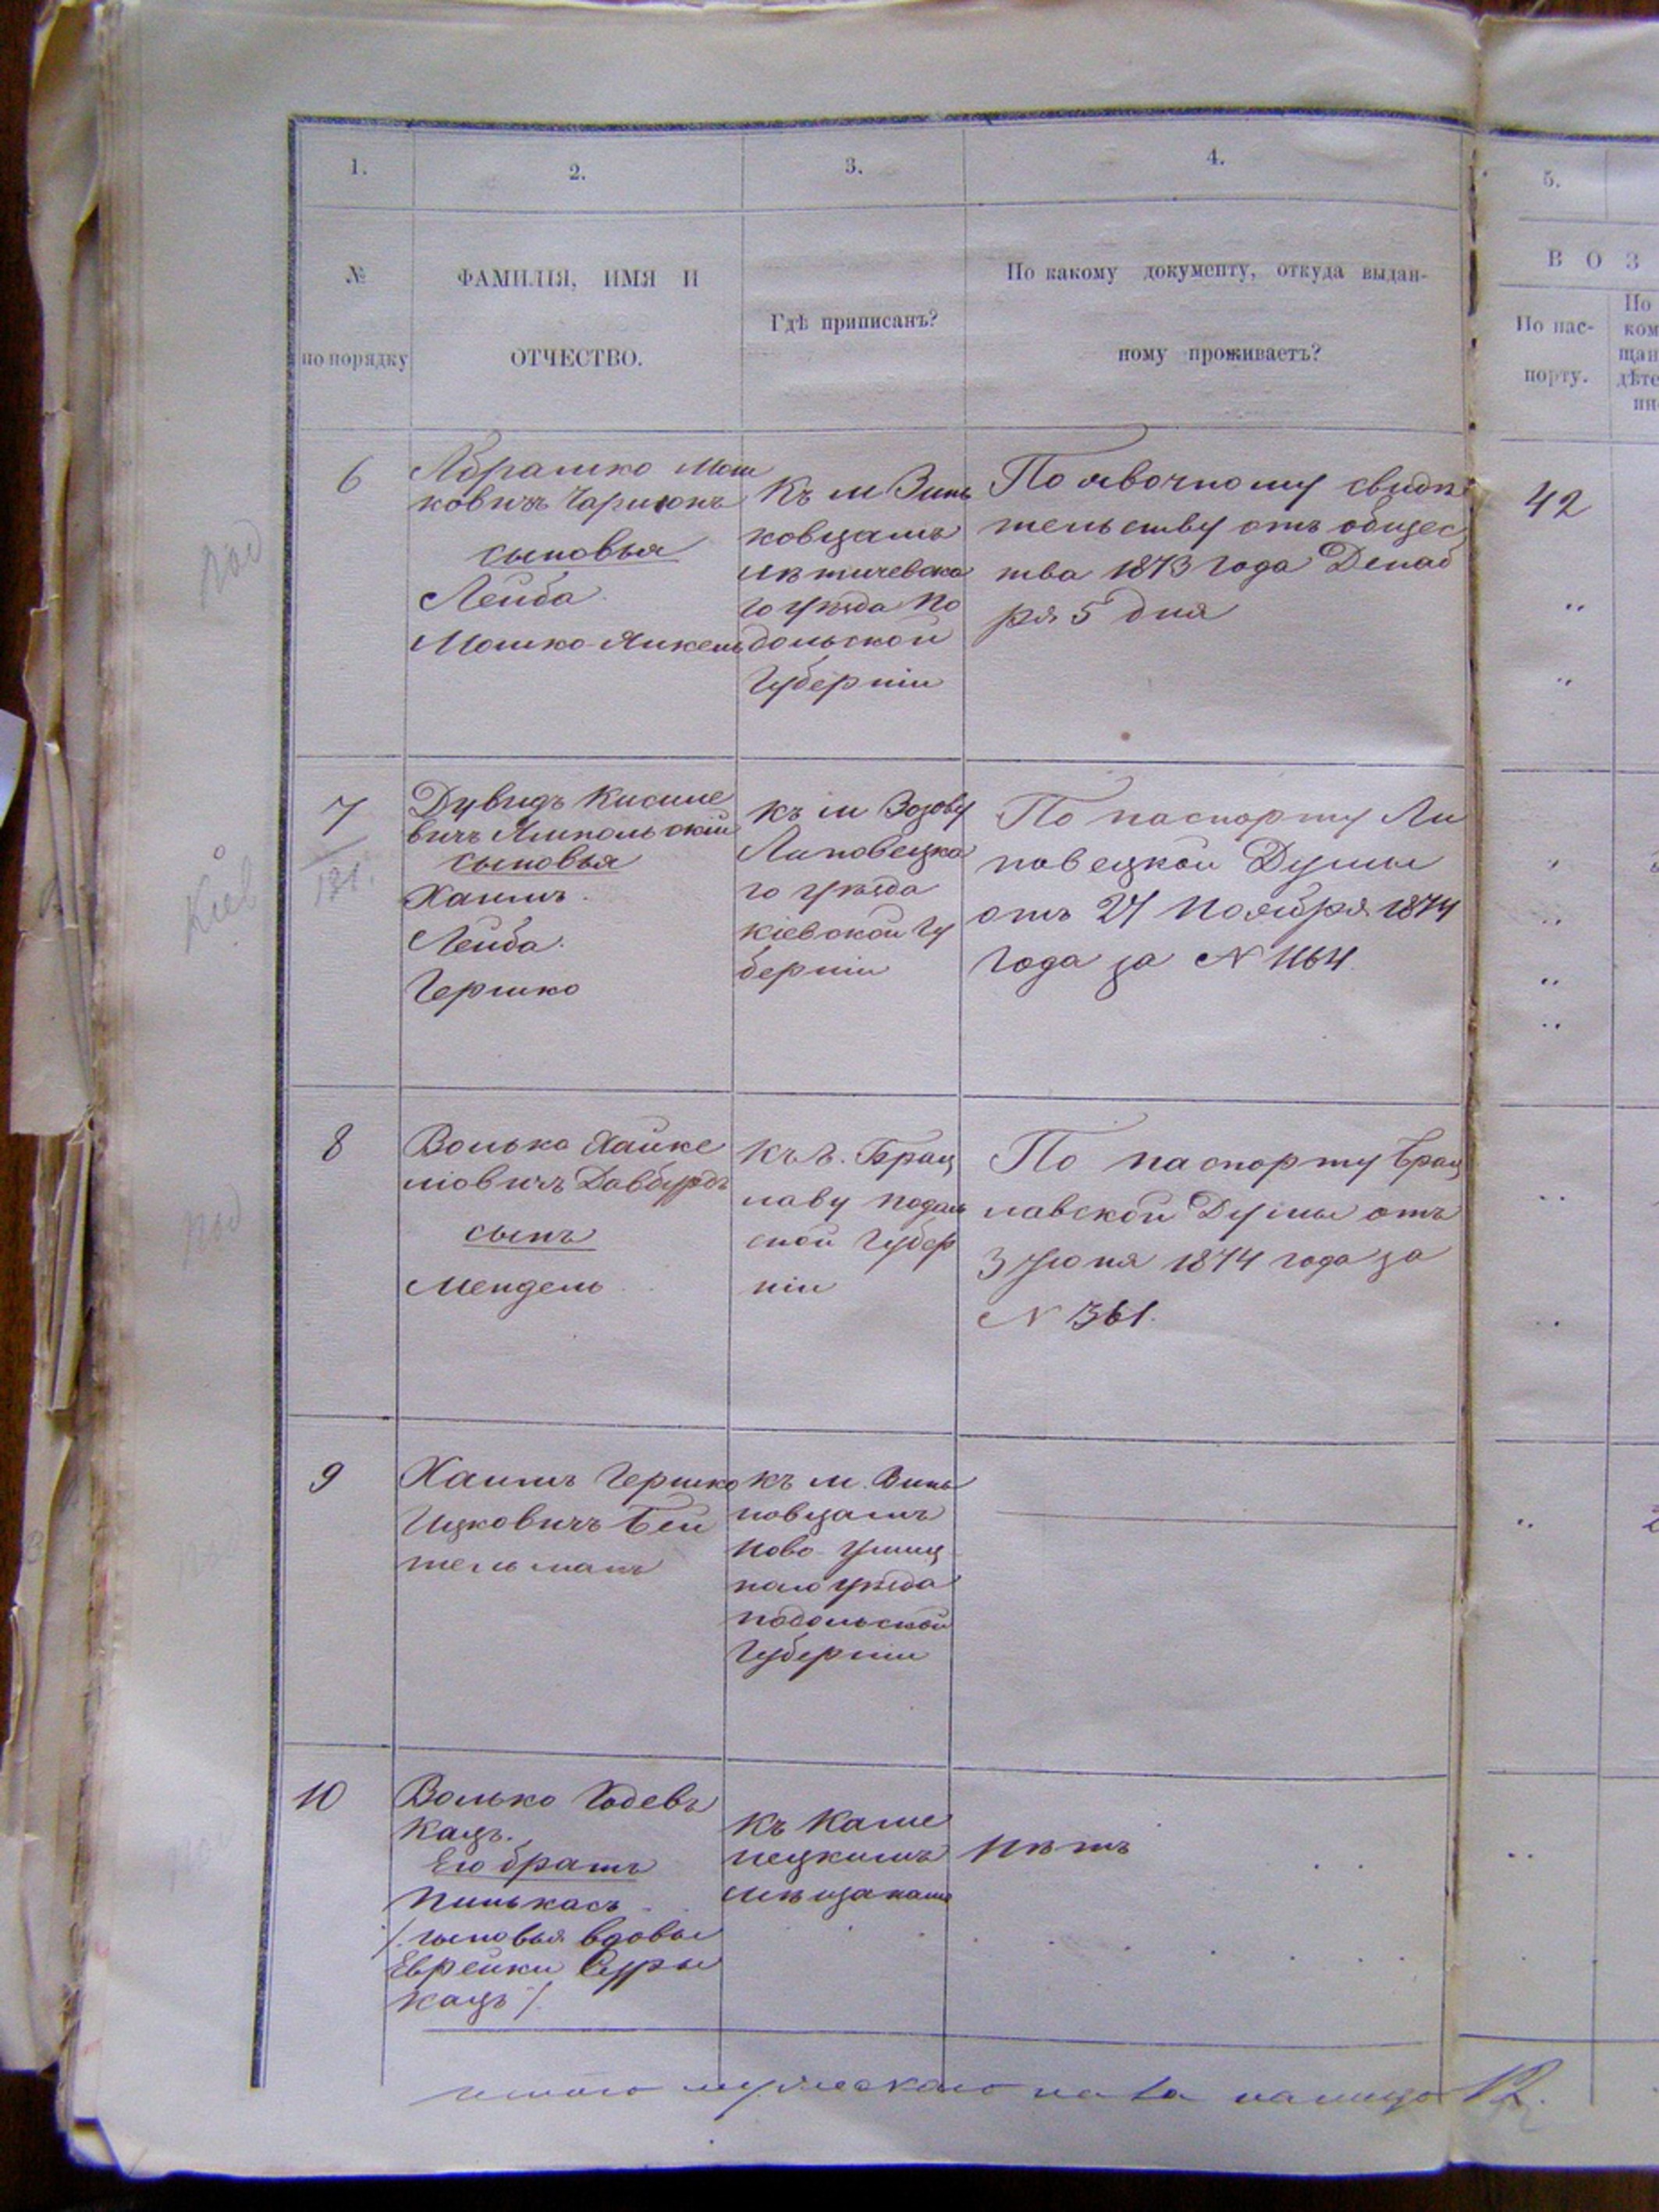 1.
2.
3.
4.
5.
№
по порядку
ФАМИЛІЯ, ИМЯ И
ОТЧЕСТВО.
Гдѣ приписанъ?
По какому документу, откуда выдан-
ному проживаетъ?
В О З
По пас-
порту.
По
ком
щан
дѣте
6
Абрамко Мош
ковичъ
сыновья
Лейба
Мошко-Янкель
Къ м Зинь
ковцамъ
Летичевска
го уѣзда По
дольской
Губерніи
По явочному свидѣ
тельству отъ общес
тва 1873 года Декаб
ря 5 дня
42
7
Дувидъ
вичъ Ямпольскій
сыновья
Хаимъ
Лейба
Гершко
къ м Зозову
Липовецка
го уѣзда
Кіевской Гу
берніи
По паспорту Ли
повецкой Думы
отъ 24 Ноября 1874
года за № 1164
8
Волько Хайке
лювичъ Давбурдъ
сынъ
Мендель
Къ г. Брац
лаву Подоль
ской Губер
ніи
По паспорту Брац
лавской Думы отъ
3 Іюня 1874 года за
№ 361.
9
Хаимъ Гершко
Ицковичъ Бей
тельманъ
къ м. Винь
ковцамъ
Ново-Ушиц
каго уѣзда
Подольской
Губерніи
10
Волько Годевъ
Кацъ.
Его братъ
Пинькасъ
/. сыновья вдовы
Еврейки Суры
Кацъ /.
Къ Каме
нецкимъ
мѣщанамъ
Нѣтъ
итого мужескаго пола на лицо 12.